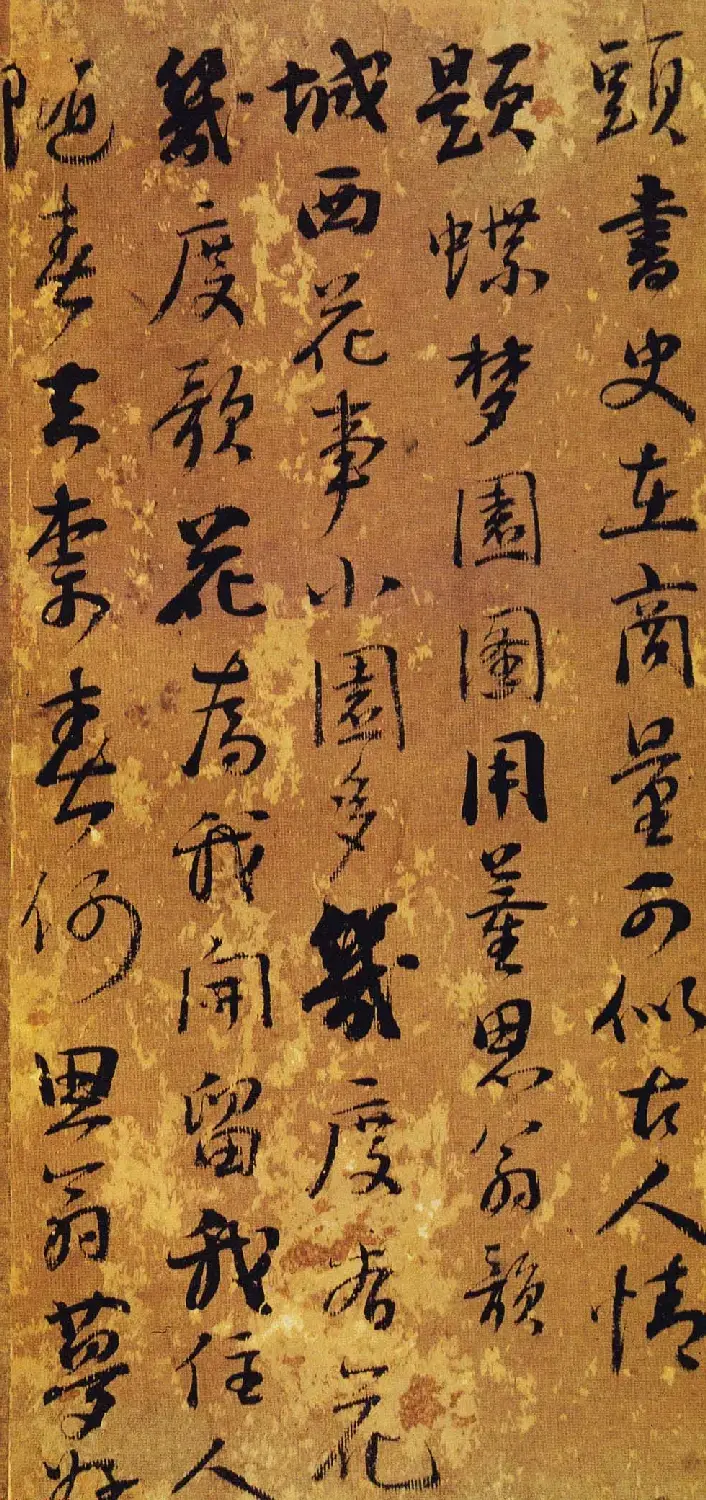 頭書史在商量可似古人情
題蝶梦園圖用董思翁韻
城西花事小園多幾度看花
幾度歌花為我開留我住人
隨春去柰春何思翁夢好